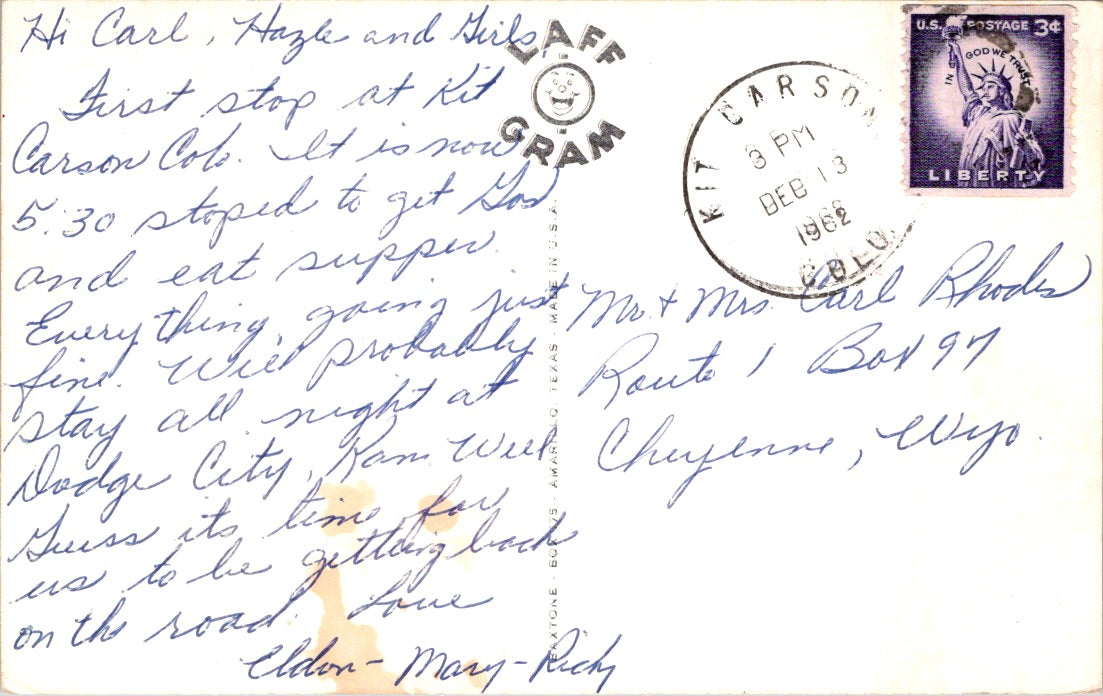 Hi Carl, Hazle and Girls,
First stop at Kit
Carson Colo. It is now
5:30 stoped to get Gas
and eat supper.
Every thing going just
fine. Will probably
stay all night at
Dodge City, Kan. Well
Guess its time for
us to be getting back
on the road. Love
Eldon - Mary - Ricky
LAFF
GRAM
BAXTONE · BOX · AMARILLO, TEXAS · MADE IN U.S.A.
KIT CARSON
3 PM
FEB 13
1962
COLO.
U.S. POSTAGE 3¢
IN GOD WE TRUST
LIBERTY
Mr. + Mrs. Carl Rhodes
Route 1 Box 97
Cheyenne, Wyo.